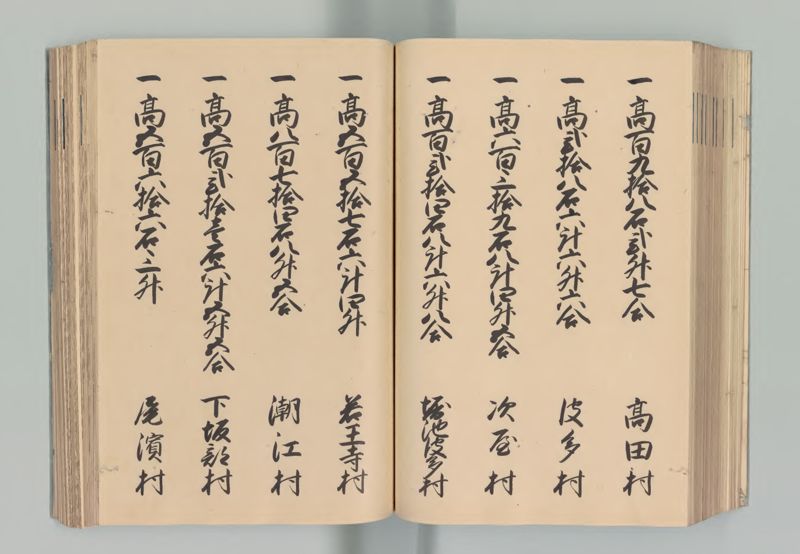 一高百九拾八石弐升七合 高田村
一高弐拾八石六斗六升六合 波多村
一高六百三拾九石八斗四升五合 次屋村
一高百弐拾四石八斗六升八合 堀池波多村
一高五百五拾七石六斗四升 若王寺村
一高八百七拾四石八升五合 潮江村
一高五百弐拾壱石六斗五升五合 下坂部村
一高五百六拾六石三升 尾濱村